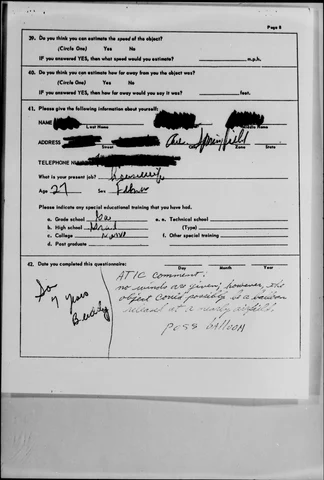 Page 8
39. Do you think you can estimate the speed of the object?
(Circle One) Yes No
IF you answered YES, then what speed would you estimate? m.p.h.
40. Do you think you can estimate how far away from you the object was?
(Circle One) Yes No
IF you answered YES, then how far away would you say it was? feet.
41. Please give the following information about yourself:
NAME
Last Name Middle Name
ADDRESS Ave Springfield
Street City Zone State
TELEPHONE
What is your present job? housewife
Age 27 Sex
Please indicate any special educational training that you have had.
a. Grade school e. Technical school
b. High school Grad (Type)
c. College f. Other special training
d. Post graduate
42. Date you completed this questionnaire:
Day Month Year
ATIC comment:
no winds are given; however, the
object could possibly be a balloon
released at a nearby airfield.
Poss balloon
Son
7 years
Buddy